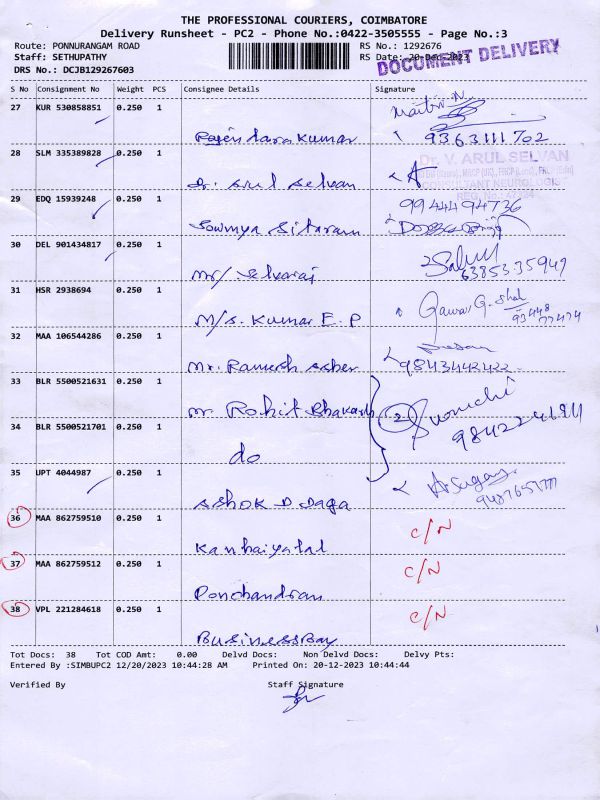 THE PROFESSIONAL COURIERS, COIMBATORE
Delivery Runsheet - PC2 - Phone No.:0422-3505555 - Page No.:3
Route: PONNURANGAM ROAD
RS No.: 1292676
Staff: SETHUPATHY
RS Date: 20-Dec-2023
DOCUMENT DELIVERY
DRS No.: DCJB129267603
S No Consignment No Weight PCS Consignee Details Signature
27 KUR 530858851 0.250 1
Rajendara Kumar 9363111702
28 SLM 335389828 0.250 1
Dr. V. ARUL SELVAN
CONSULTANT NEUROLOGIST
Dr. Arul Selvan
29 EDQ 15939248 0.250 1 9944494736
Sowmya Sitaram
30 DEL 901434817 0.250 1
Mr/. Selvaraj 6385335949
31 HSR 2938694 0.250 1 Gaurav G. Shah
93448
77474
M/s. Kumar E.P
32 MAA 106544286 0.250 1
Mr. Ramesh Asher 9843442422
33 BLR 5500521631 0.250 1
Mr Rohit 2
34 BLR 5500521701 0.250 1
do
35 UPT 4044987 0.250 1
Ashok D Daga
36 MAA 862759510 0.250 1 C/N
Kanhaiyalal
37 MAA 862759512 0.250 1 C/N
Ponchandran
38 VPL 221284618 0.250 1 C/N
BusinessBay
Tot Docs: 38 Tot COD Amt: 0.00 Delvd Docs: Non Delvd Docs: Delvy Pts:
Entered By :SIMBUPC2 12/20/2023 10:44:28 AM Printed On: 20-12-2023 10:44:44
Verified By Staff Signature